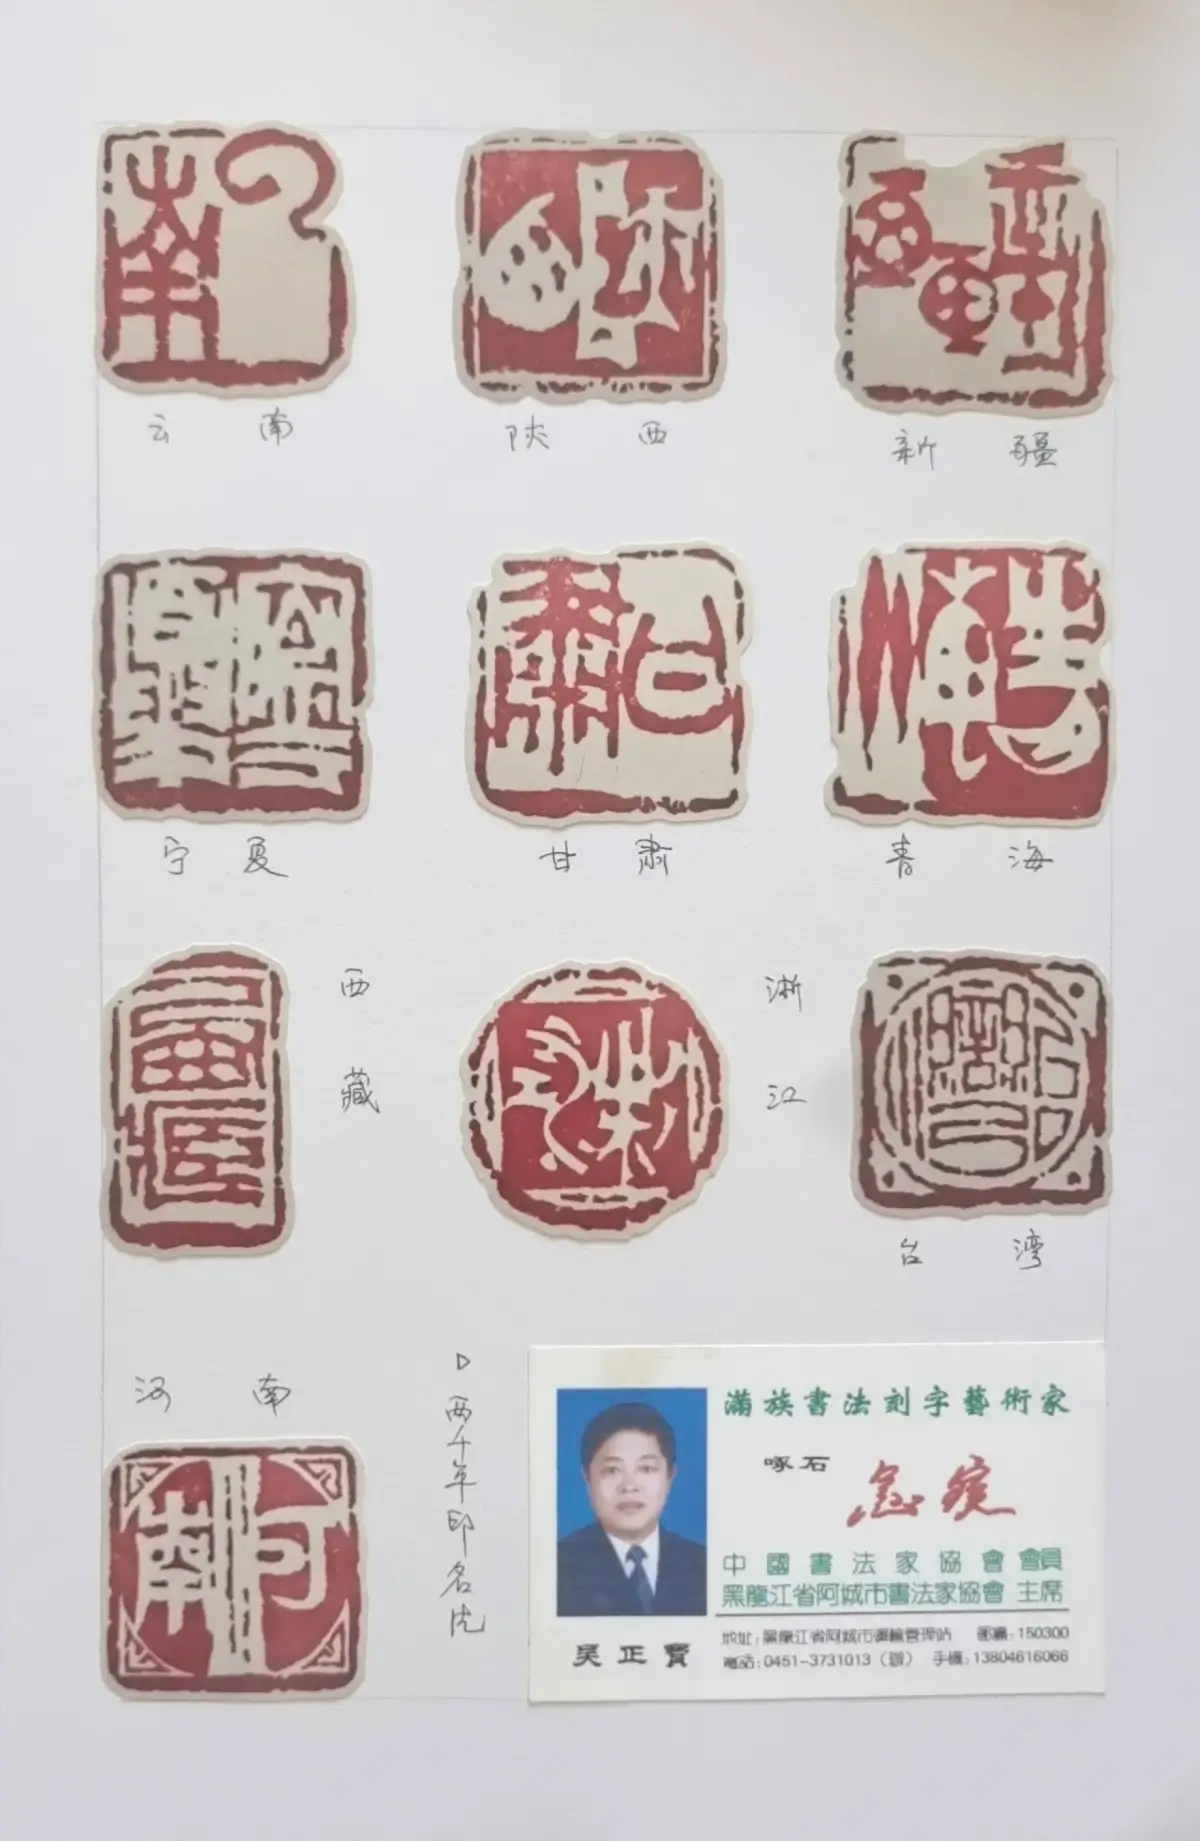 云南
陕西
新疆
宁夏
甘肃
青海
西藏
浙江
台湾
河南
两千年印名
滿族書法刻字藝術家
啄石
中國書法家協會會員
黑龍江省阿城市書法家協會 主席
吴正寳
地址:黑龍江省阿城市運輸管理站 郵編:150300
電話:0451-3731013(辦) 手機:13804616066